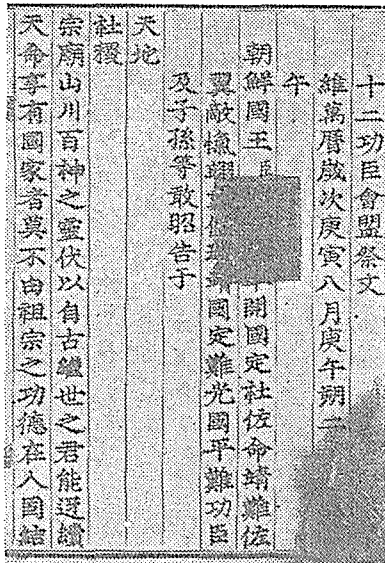 十二功臣會盟祭文
維萬曆歲次庚寅八月庚午朔二
午
朝鮮國王臣開國定社佐命靖難佐
翼敵愾翊國定難光國平難功臣
及子孫等敢昭告于
天地
社稷
宗廟山川百神之靈伏以自古繼世之君能迓續
天命享有國家者莫不由祖宗之功德在人固結